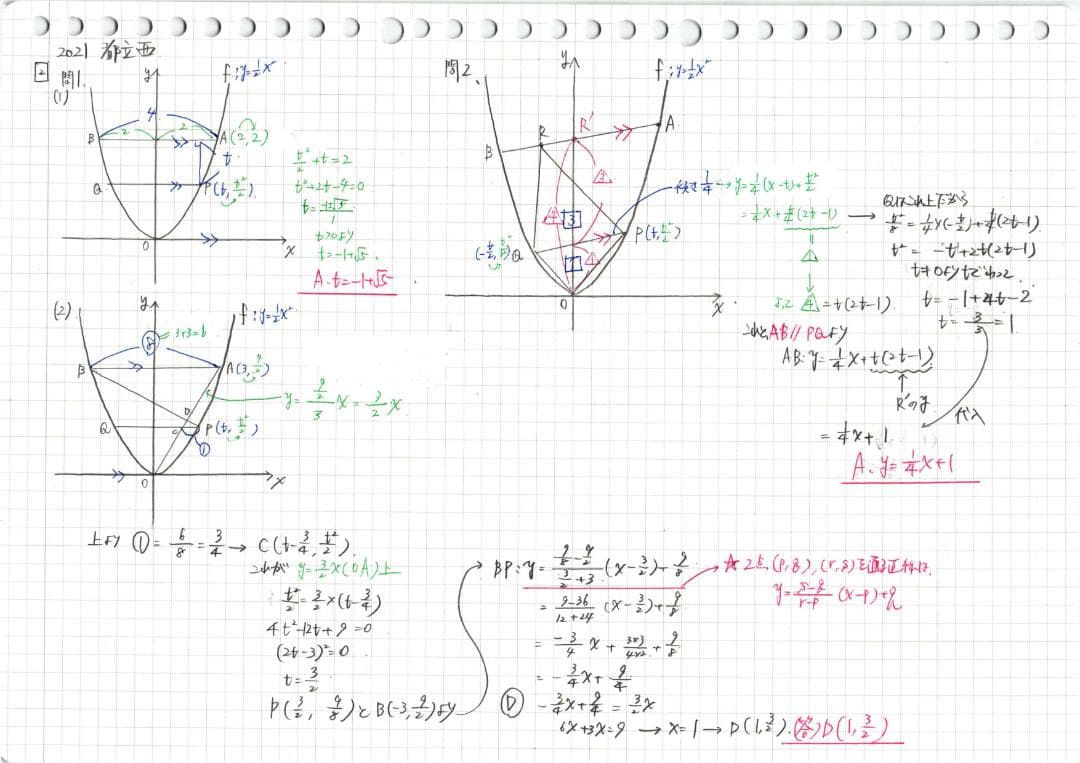 2021 都立西
2 問1.
(1)
y
f: y=½x²
4
2 2
B
A(2,2)
t
Q
P(t, t²/2)
O
x
t²/2+t=2
t²+2t-4=0
t=(-1±√5)/1
t>0より
t=-1+√5.
A. t=-1+√5
(2)
y
f: y=½x²
⑧ 3+3=6
B
A(3, 9/2)
y=(9/2)/3 x=3/2 x
D
Q
C
P(t, t²/2)
①
O
x
上より ①=6/8=3/4→C(t-3/4, t²/2).
これが y=3/2 x(OA)上
t²/2=3/2×(t-3/4)
4t²-12t+9=0
(2t-3)²=0
t=3/2
P(3/2, 9/8)とB(-3, 9/2)より
BP: y=(9/8-9/2)/(3/2+3)(x-3/2)+9/8
=(9-36)/(12+24)(x-3/2)+9/8
=-3/4 x+(3×3)/(4×2)+9/8
=-3/4 x+9/4
Ⓓ -3/4 x+9/4=3/2 x
6x+3x=9→x=1→D(1, 3/2). (答)D(1, 3/2)
☆2点(p,q),(r,s)を通る直線は,
y=(s-q)/(r-p)(x-p)+q
問2、
y
f: y=½x²
R
R'
A
B
③
④
3
1
P(t, t²/2)
Q
O
x
傾き¼→y=¼(x-t)+t²/2
=¼x+t/4(2t-1)
よって ④=t(2t-1).
これとAB//PQより
AB: y=¼x+t(2t-1)
R'のy
=¼x+1
代入
A. y=¼x+1
t²/8=¼×(-t/2)+t/4(2t-1)
t²=-t+2t(2t-1)
t≠0よりtでわって
t=-1+4t-2
t=3/3=1